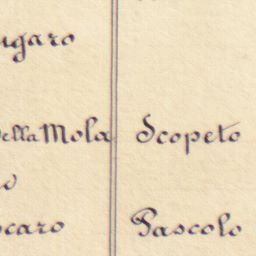 ngaro
della Mola Scopeto
caro Pascolo